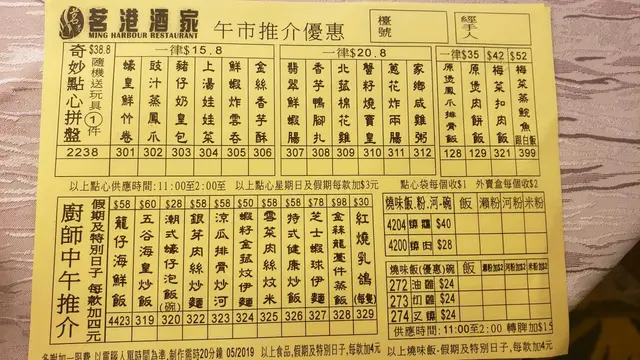 茗 茗港酒家 午市推介優惠 檯號 經手人
MING HARBOUR RESTAURANT
奇妙點心拼盤 $38.8 隨機送玩具①件 2238
一律$15.8
蠔皇鮮竹卷 301
豉汁蒸鳳爪 302
豬仔奶皇包 303
上湯娃娃菜 304
鮮蝦炸雲吞 305
金絲香芋酥 306
一律$20.8
翡翠鮮蝦腸 307
香芋鴨腳扎 308
北菇棉花雞 309
蟹籽燒賣皇 310
蔥花炸兩腸 311
家鄉咸雞粥 312
一律$35
原煲鳳爪排骨飯 128
原煲肉餅飯 129
$42
梅菜扣肉飯 321
$52
梅菜蒸鯇魚 跟白飯 399
以上點心供應時間:11:00至2:00至 以上點心星期日及假期每款加$3元 點心袋每個收$1 外賣盒每個收$2
廚師中午推介
假期及特別日子 每款加四元
$58 籠仔海鮮飯 4423
$60 五谷海皇炒飯 319
$28 潮式蠔仔泡飯(碗) 320
$58 銀芽肉絲炒麵 322
$58 涼瓜排骨炒河 323
$50 蝦籽金菇炆伊麵 324
$58 雪菜肉絲炆米 325
$58 特式健康炒飯 326
$58 芝士蝦球伊麵 327
$98 金絲龍蝦件蒸飯 328
$30 紅燒乳鴿(每隻) 329
燒味飯.粉.河-碗- 飯 瀨粉 河粉 米粉
4204 燒鵝 $40
4200 燒肉 $28
燒味飯(優惠)碗 飯 瀨粉加$2 河粉加$2 米粉加$2
272 油雞 $24
273 切雞 $24
274 叉燒 $24
供應時間:11:00至2:00 轉脾加$15
多謝加一服務 以電腦入單時間為準,制作需時20分鐘 05/2019 以上食品,假期及特別日子,每款加4元 以上燒味飯-假期及特別日子,每款加